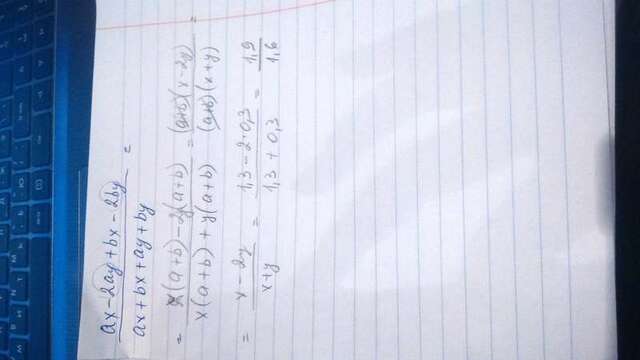 ax-2ay+bx-2by / ax+bx+ay+by =
= x(a+b)-2y(a+b) / x(a+b)+y(a+b) = (a+b)(x-2y) / (a+b)(x+y) =
= x-2y / x+y = 1,3-2·0,3 / 1,3+0,3 = 1,9 / 1,6